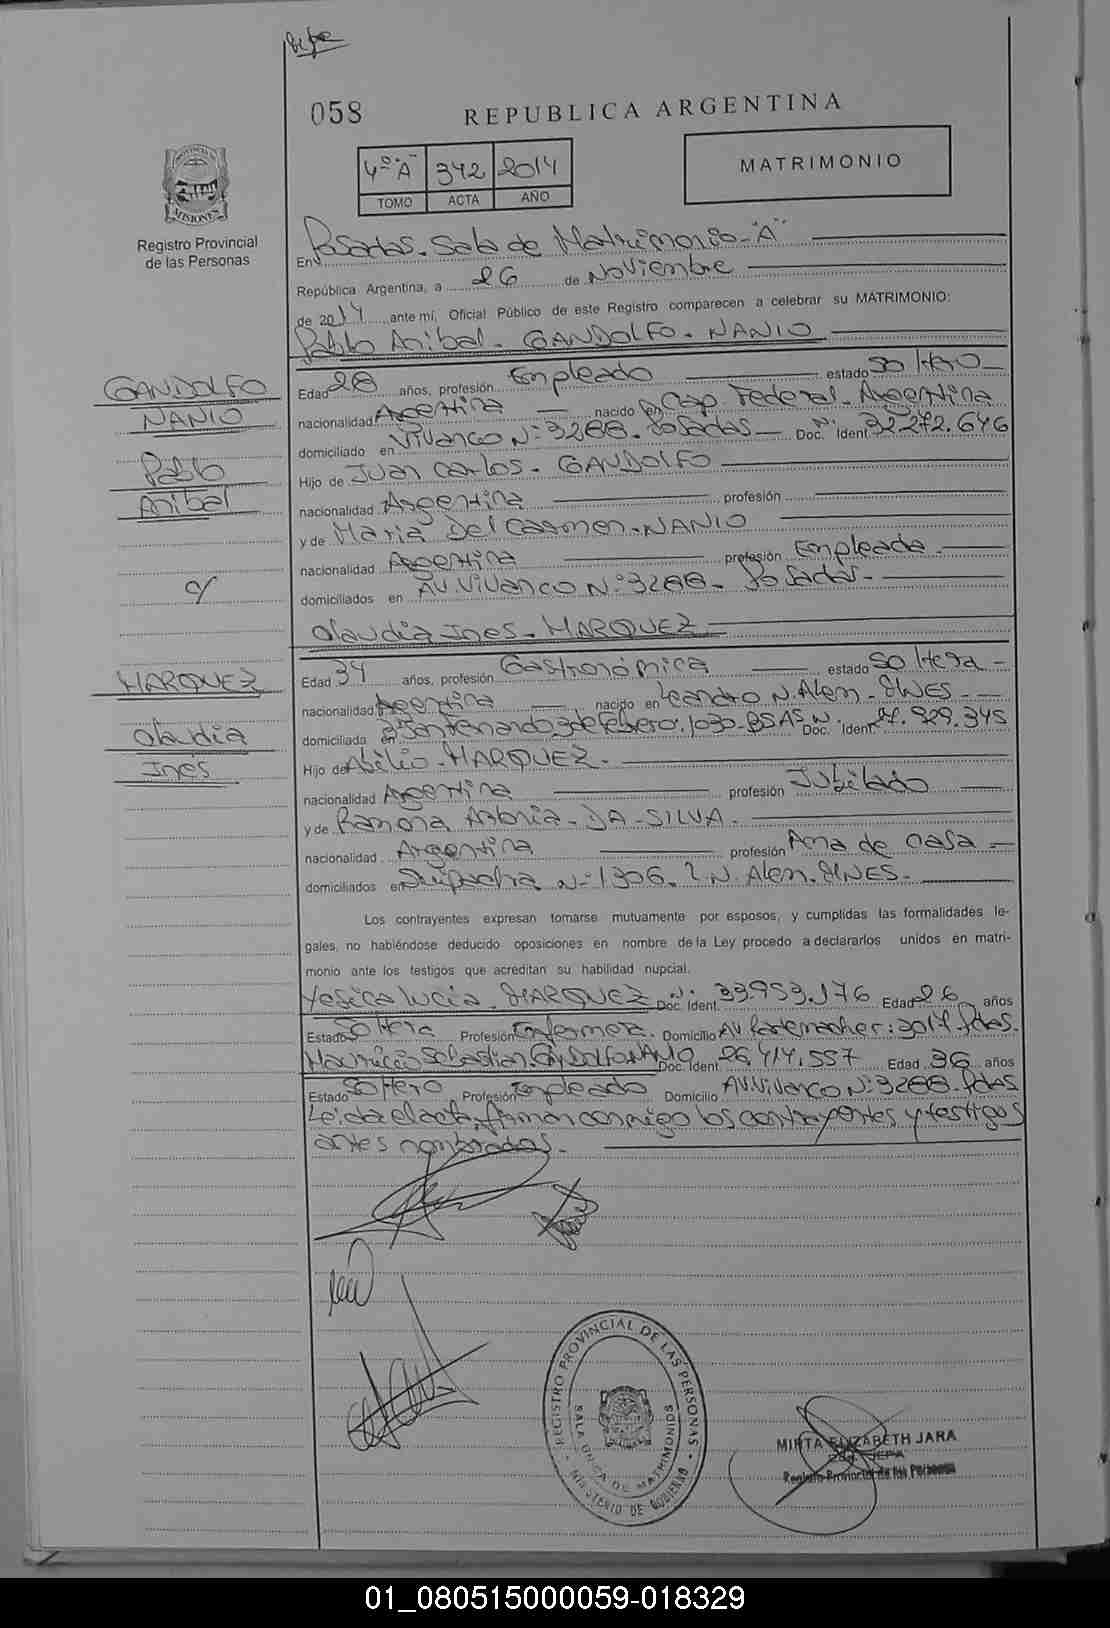 058
REPUBLICA ARGENTINA
4º "A" 342 2014
TOMO ACTA AÑO
MATRIMONIO
PROVINCIA DE MISIONES
Registro Provincial
de las Personas
En Posadas. Sala de Matrimonio-"A"
República Argentina, a 26 de Noviembre
de 2014 ante mí, Oficial Público de este Registro comparecen a celebrar su MATRIMONIO:
Pablo Anibal. GANDOLFO. NANIO
GANDOLFO
NANIO
Pablo
Anibal
Edad 28 años, profesión Empleado estado Soltero
nacionalidad Argentina nacido en Cap. Federal. Argentina
domiciliado en Vivanco Nº 3288. Posadas Doc. Ident. Nº 32272.646
Hijo de Juan Carlos. GANDOLFO
nacionalidad Argentina profesión
y de Maria Del Carmen. NANIO
nacionalidad Argentina profesión Empleada
domiciliados en AV. Vivanco Nº 3288. Posadas.
c/
Claudia Ines. MARQUEZ
MARQUEZ
Claudia
Inés
Edad 34 años, profesión Gastronómica estado Soltera
nacionalidad Argentina nacido en Leandro N. Alem.
domiciliada en 3 de Febrero. 1030. BSAS Doc. Ident. Nº
Hijo de Abilio. MARQUEZ.
nacionalidad Argentina profesión Jubilado
y de Ramona Antonia. DA-SILVA.
nacionalidad Argentina profesión Ama de casa
domiciliados en Suipacha Nº 1306. L. N. Alem.
Los contrayentes expresan tomarse mutuamente por esposos, y cumplidas las formalidades le-
gales, no habiéndose deducido oposiciones en nombre de la Ley procedo a declararlos unidos en matri-
monio ante los testigos que acreditan su habilidad nupcial.
Yesica Lucia. MARQUEZ Doc. Ident. Nº 33.953.176 Edad 26 años
Estado Soltera Profesión Enfermera. Domicilio AV. 3017. Pdas.
Mauricio Sebastian. GANDOLFO NANIO Doc. Ident. 26.414.557 Edad 36 años
Estado Soltero Profesión Empleado Domicilio AV. Vivanco Nº 3288. Pdas
Leida el acta, firman conmigo los contrayentes y testigos
antes nombrados.
REGISTRO PROVINCIAL DE LAS PERSONAS
SALA UNICA DE MATRIMONIOS
MINISTERIO DE GOBIERNO
MIRTA ELIZABETH JARA
Registro Provincial de las Personas
01_080515000059-018329